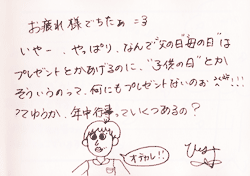 お疲れ様でちたぁ =3
いやー、やっぱり、なんで"父の日""母の日"とは
プレゼントとかあげるのに、"子供の日"とか
そういうのって、何にもプレゼントないのぉ
ってゆうか、年中行事っていくつあるの？
オテカレ!!